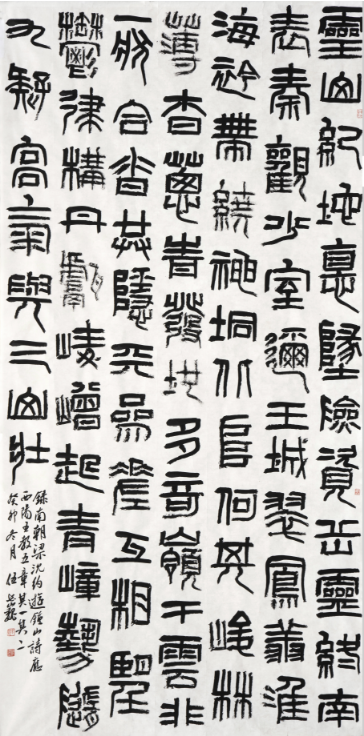 靈山紀地惪墬險資岳靈終南
表秦觀少室邇王城翠鳳翔淮
海衿帶繞神坰北阜何其峻林
薄杳蔥青發地多奇嶺干雲非
一狀合沓共隱天參差互相望
鬱律構丹巘崚嶒起青嶂勢隨
九疑高氣與三山壯
錄南朝梁沈約遊鍾山詩應
西陽王教五章其一其二
癸卯冬月